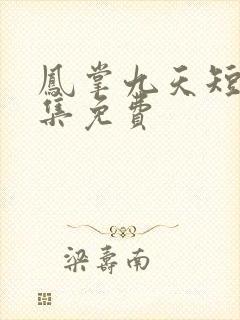 鳳掌九天短
集免費
梁壽南